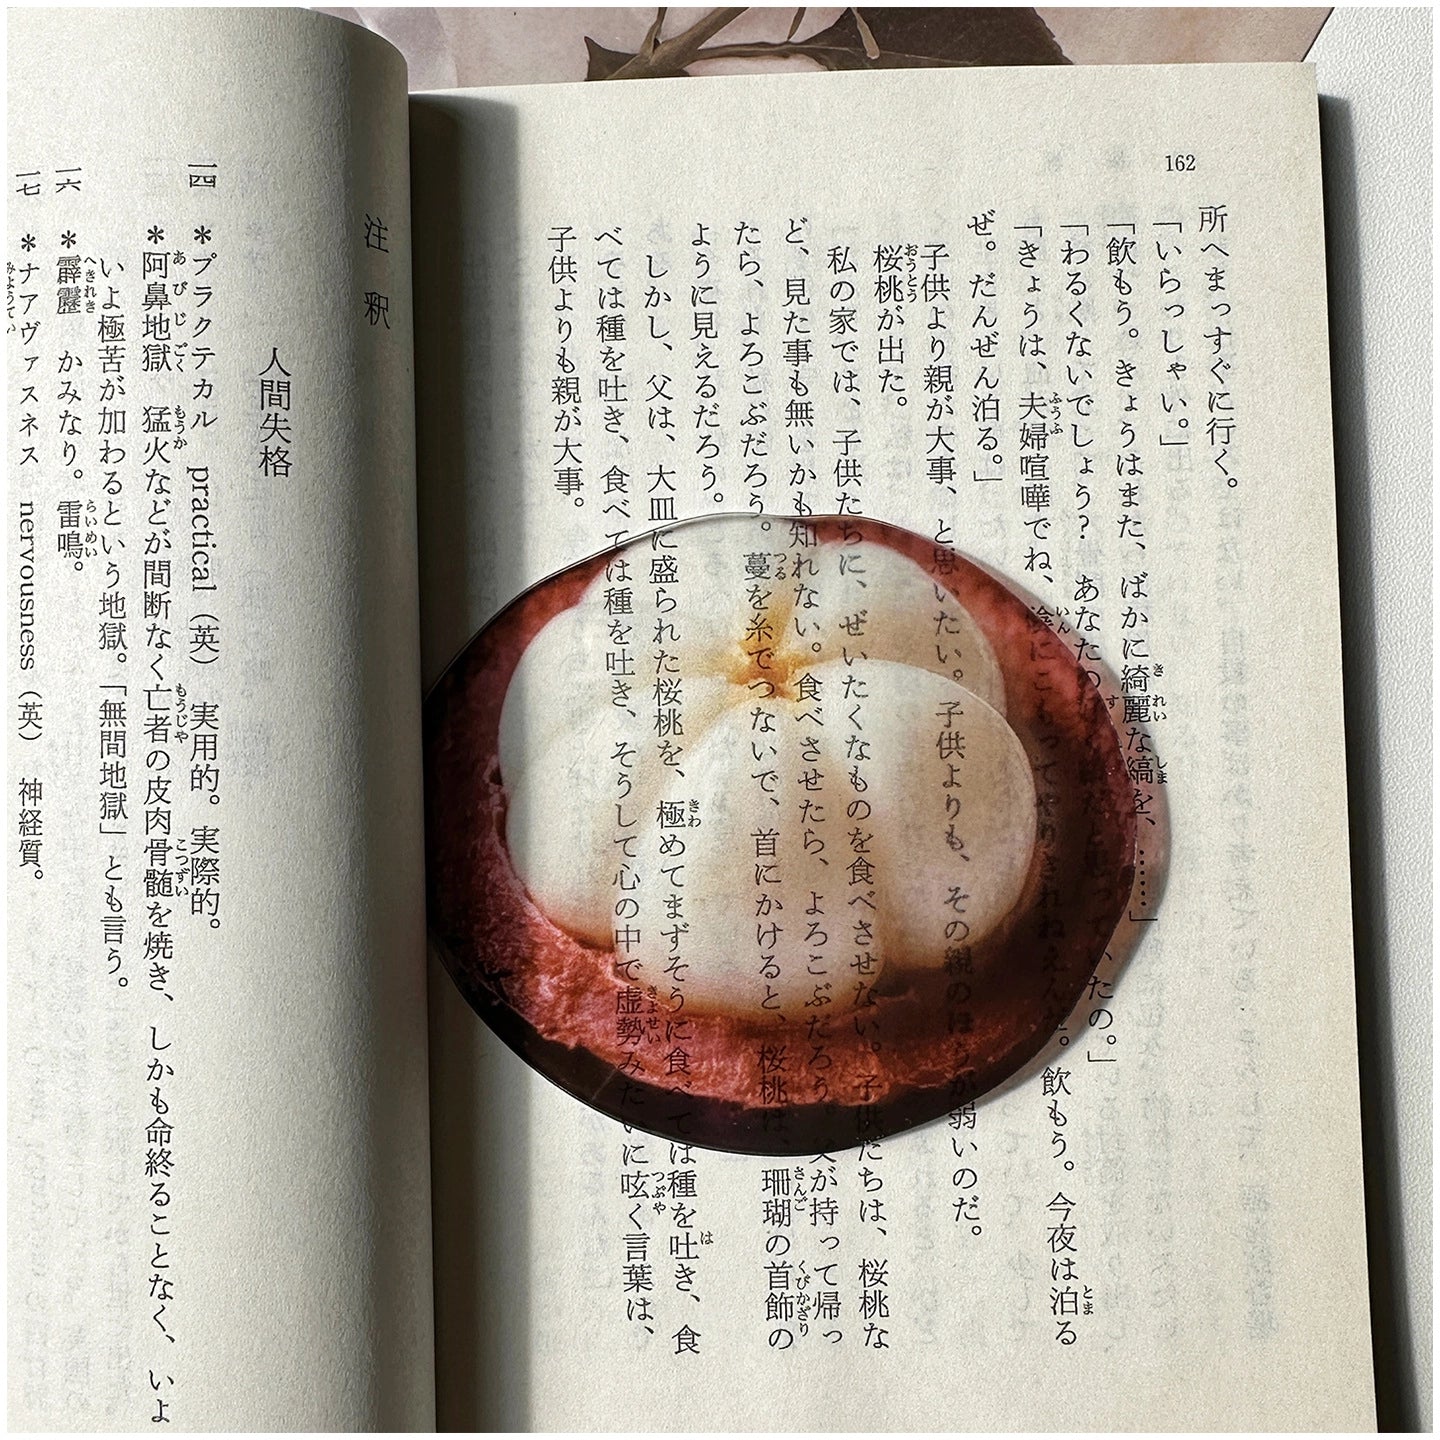 162
所へまっすぐに行く。
「いらっしゃい。」
「飲もう。きょうはまた、ばかに綺麗な縞を、……」
「わるくないでしょう? あなたの好く縞だと思っていたの。」
「きょうは、夫婦喧嘩でね、陰にこもってやりきれねえんだ。飲もう。今夜は泊る
ぜ。だんぜん泊る。」
子供より親が大事、と思いたい。子供よりも、その親のほうが弱いのだ。
桜桃が出た。
私の家では、子供たちに、ぜいたくなものを食べさせない。子供たちは、桜桃な
ど、見た事も無いかも知れない。食べさせたら、よろこぶだろう。父が持って帰っ
たら、よろこぶだろう。蔓を糸でつないで、首にかけると、桜桃は、珊瑚の首飾の
ように見えるだろう。
しかし、父は、大皿に盛られた桜桃を、極めてまずそうに食べては種を吐き、食
べては種を吐き、食べては種を吐き、そうして心の中で虚勢みたいに呟く言葉は、
子供よりも親が大事。
注釈
人間失格
一四 *プラクテカル practical(英) 実用的。実際的。
*阿鼻地獄 猛火などが間断なく亡者の皮肉骨髄を焼き、しかも命終ることなく、いよ
いよ極苦が加わるという地獄。「無間地獄」とも言う。
一六 *霹靂 かみなり。雷鳴。
一七 *ナアヴァスネス nervousness(英) 神経質。